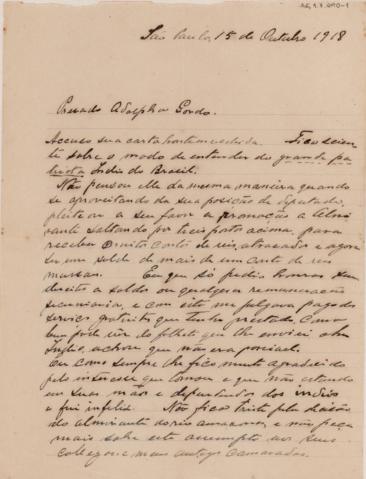 São Paulo, 15 de Outubro 1918
Presado Adolpho Gordo.
Accuso sua carta hontem recebida. Fico scien
te sobre o modo de entender do grande pa
triota Indio do Brasil.
Não pensou elle da mesma maneira quando
se aproveitando da sua posição de deputado,
pleiteou a seu favor a promoção a almi
rante saltando por tres postos acima, para
receber muitos contos de reis atrasados e agora
ter um soldo de mais de um conto de reis
mensaes. Eu que só pedia honras sem
direito a soldo ou qualquer remuneração
pecuniaria, e com isto me julgava pago dos
serviços gratuitos que tenho prestado como
bem pode ver do folheto que lhe enviei o
Indio, achou que não era possivel.
Eu como sempre lhe fico muito agradecido
pelo interesse que tomou e que não estando
em suas mãos e dependendo dos indios
fui infeliz. Não fico triste pela decisão
do almirante do rio amazonas, e não peça
mais sobre este assumpto aos seus
collegas e meus antigos camaradas.